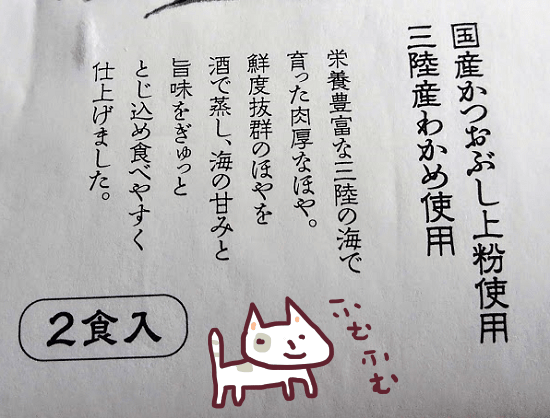 国産かつおぶし上粉使用
三陸産わかめ使用
栄養豊富な三陸の海で
育った肉厚なほや。
鮮度抜群のほやを
酒で蒸し、海の甘みと
旨味をぎゅっと
とじ込め食べやすく
仕上げました。
2食入
ふむ
ふむ